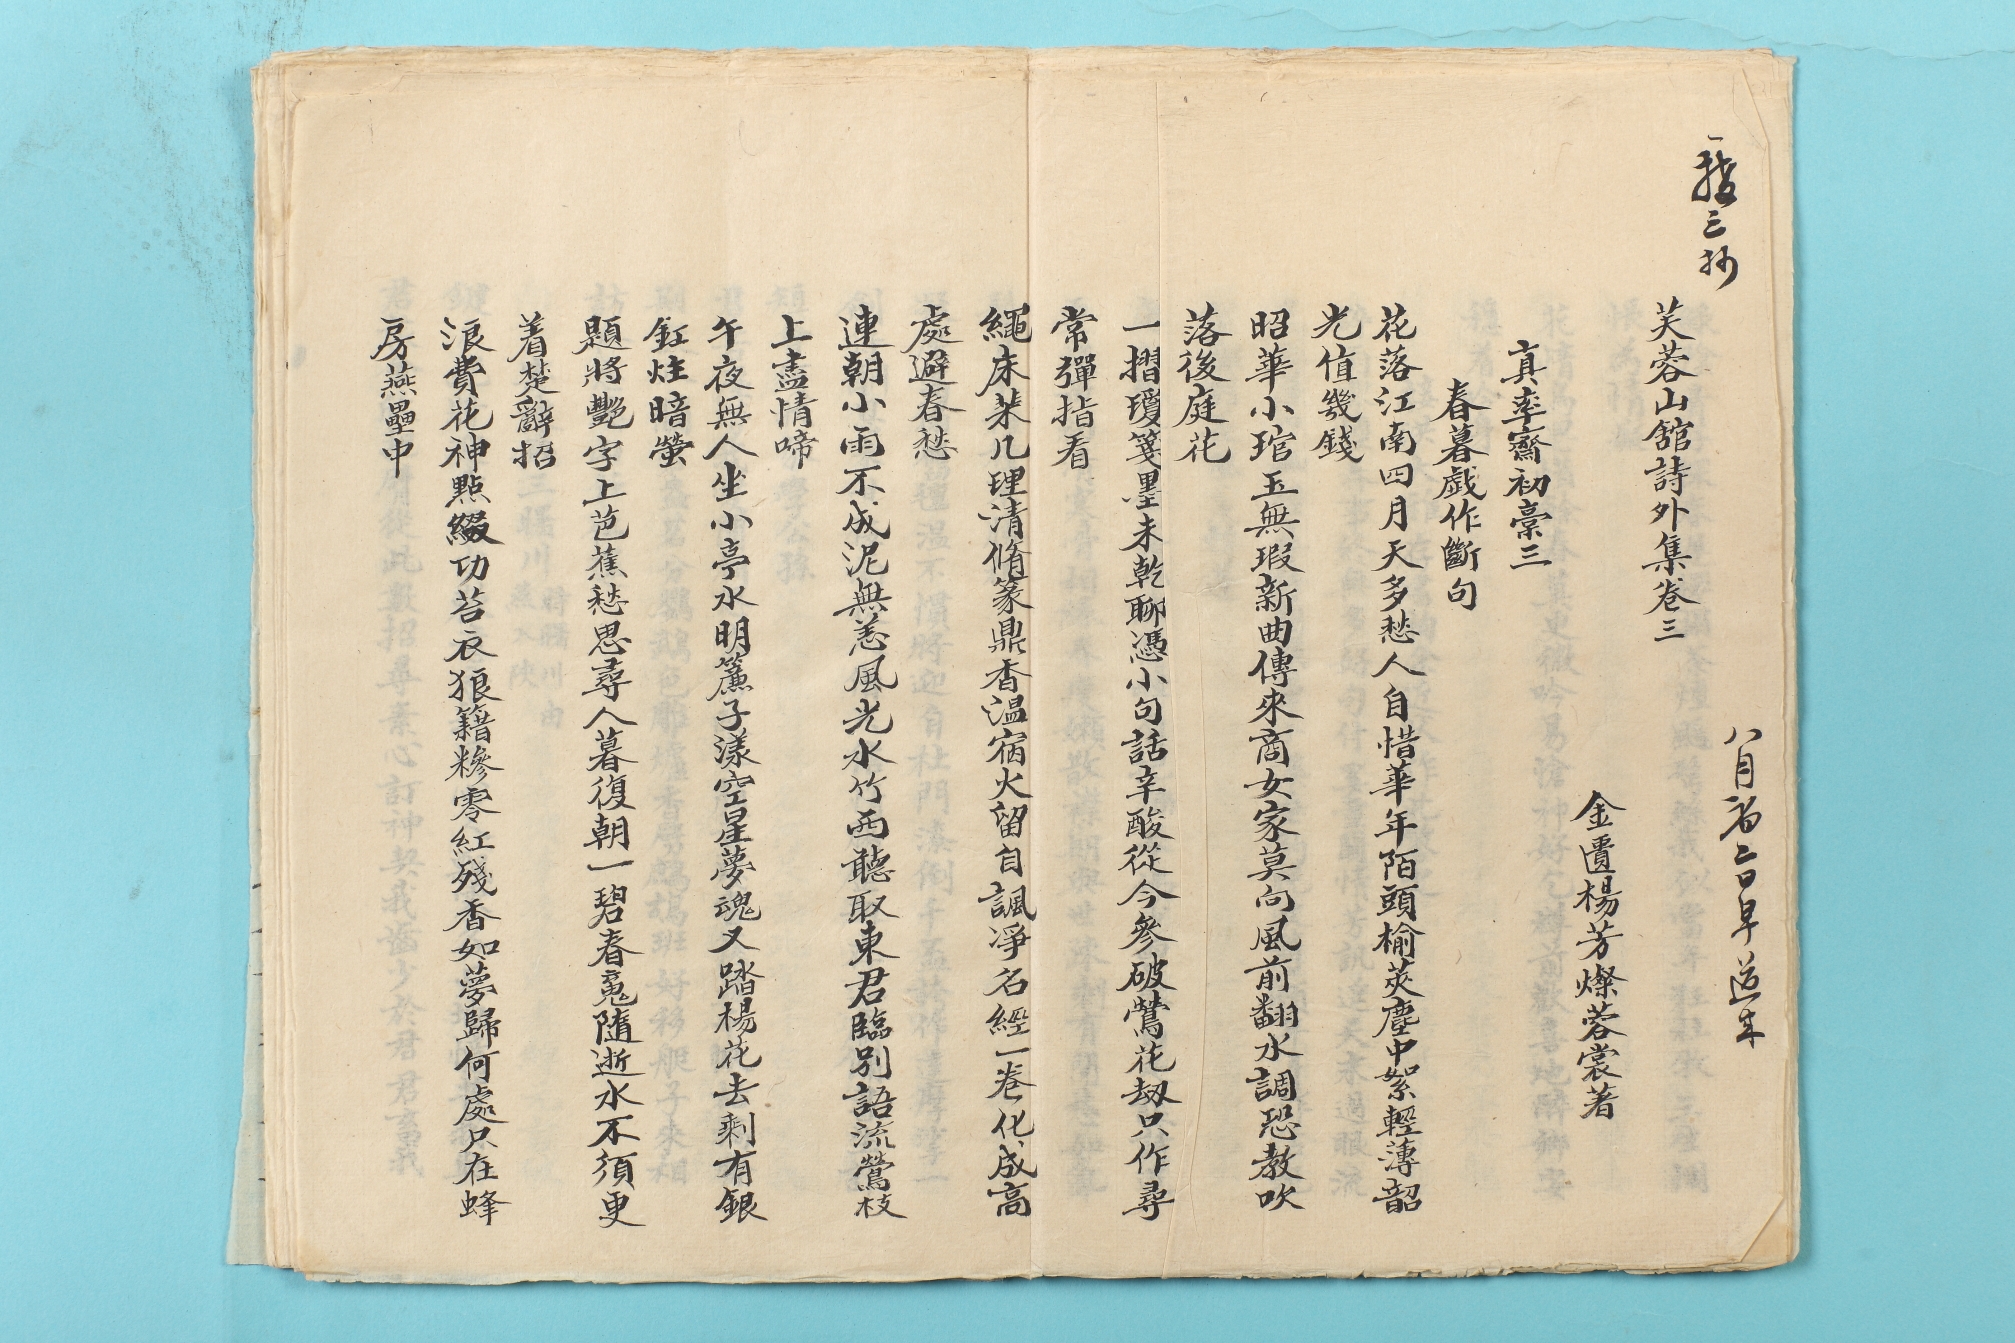 三抄
八月初二日早送來
芙蓉山舘詩外集卷三
金匱楊芳燦蓉裳著
真率齋初稾三
春暮戲作斷句
花落江南四月天多愁人自惜華年陌頭榆莢塵中絮輕薄韶
光值幾錢
昭華小琯玉無瑕新曲傳來商女家莫向風前翻水調恐教吹
落後庭花
一摺瓊箋墨未乾聊憑小句話辛酸從今參破鶯花刼只作尋
常彈指看
繩床棐几理清脩篆鼎香温宿火留自諷凈名經一卷化成高
處避春愁
連朝小雨不成泥無恙風光水竹西聽取東君臨別語流鶯枝
上盡情啼
午夜無人坐小亭水明簾子漾空星夢魂又踏楊花去剩有銀
釭炷暗螢
題將艷字上芭蕉愁思尋人暮復朝一碧春䰟隨逝水不須更
着楚辭招
浪費花神點綴功苔衣狼籍糝零紅殘香如夢歸何處只在蜂
房燕壘中